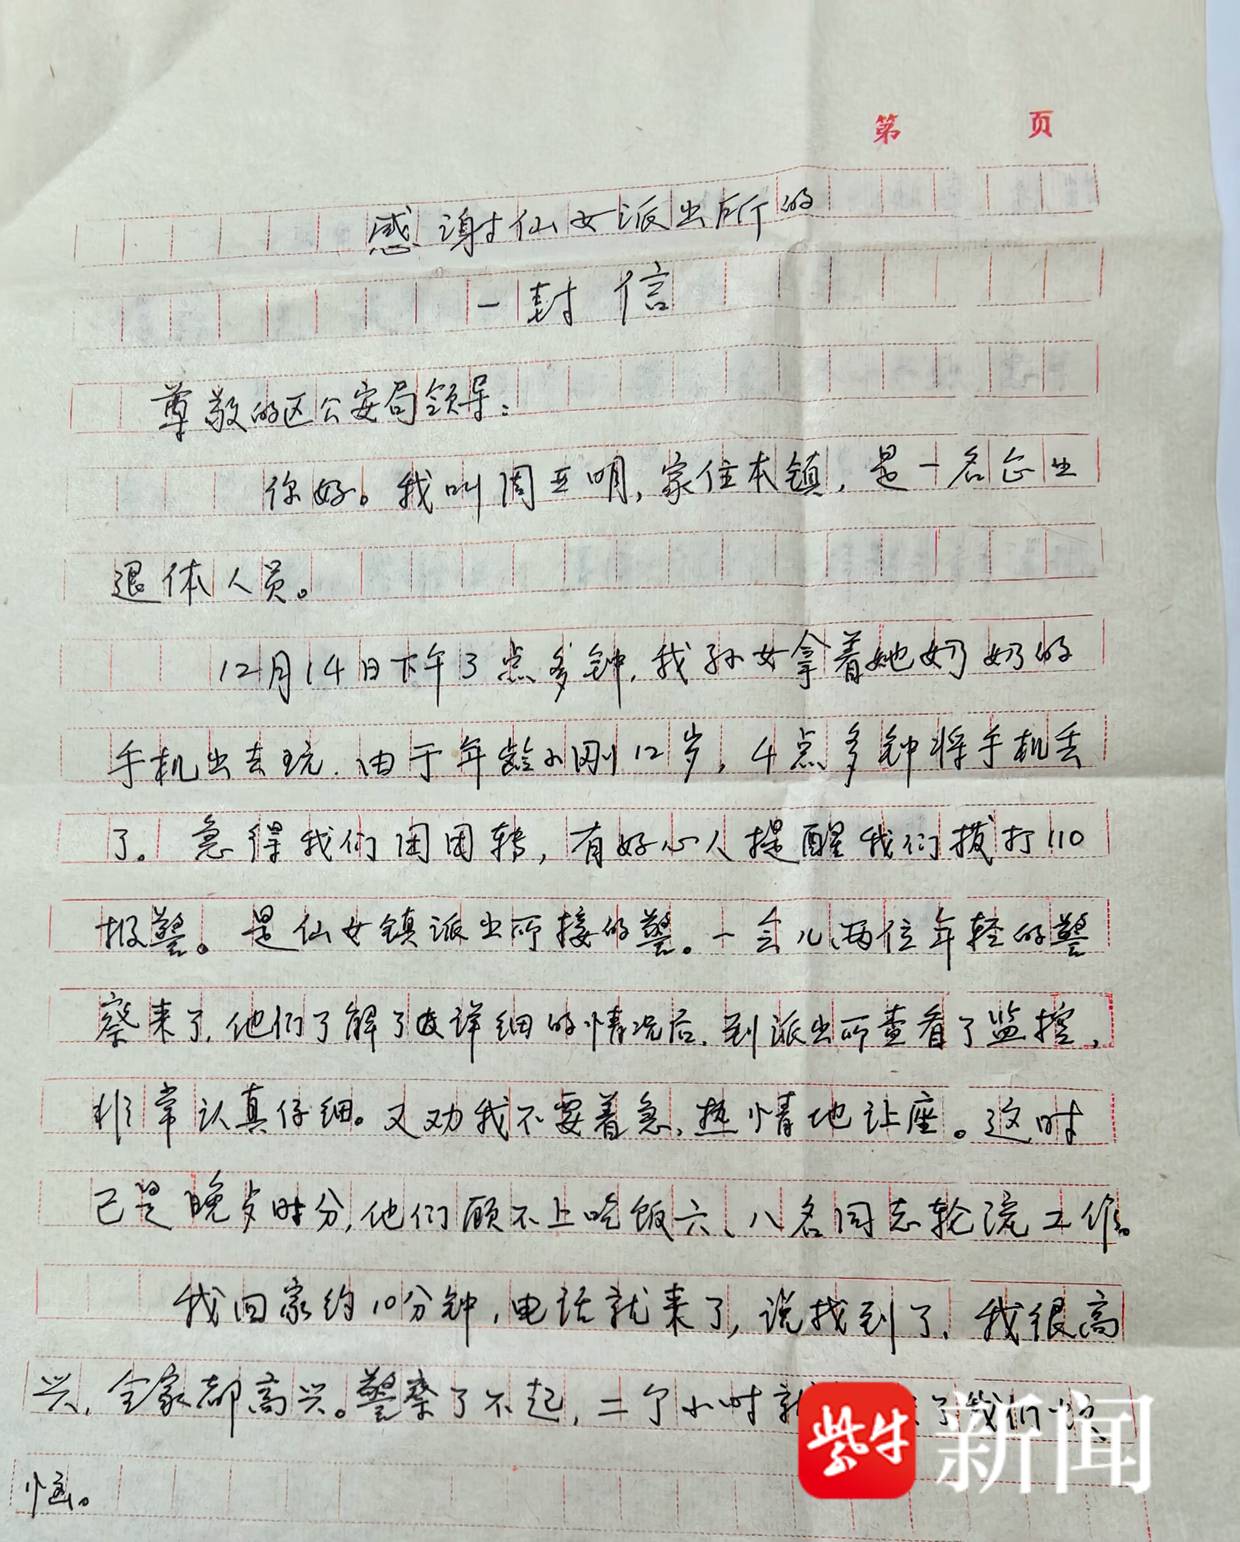 第 页
感谢仙女派出所的
一封信
尊敬的区公安局领导：
你好。我叫周正明，家住本镇，是一名企业
退休人员。
12月14日下午3点多钟，我孙女拿着她奶奶的
手机出去玩，由于年龄小刚12岁，4点多钟将手机丢
了。急得我们团团转，有好心人提醒我们拨打110
报警。是仙女镇派出所接的警。一会儿，两位年轻的警
察来了，他们了解了详细的情况后，到派出所查看了监控，
非常认真仔细。又劝我不要着急，热情地让座。这时
已是晚饭时分，他们顾不上吃饭六、八名同志轮流工作。
我回家约10分钟，电话就来了，说找到了，我很高
兴，全家都高兴。警察了不起，二个小时就 了我们烦
恼。
紫牛新闻